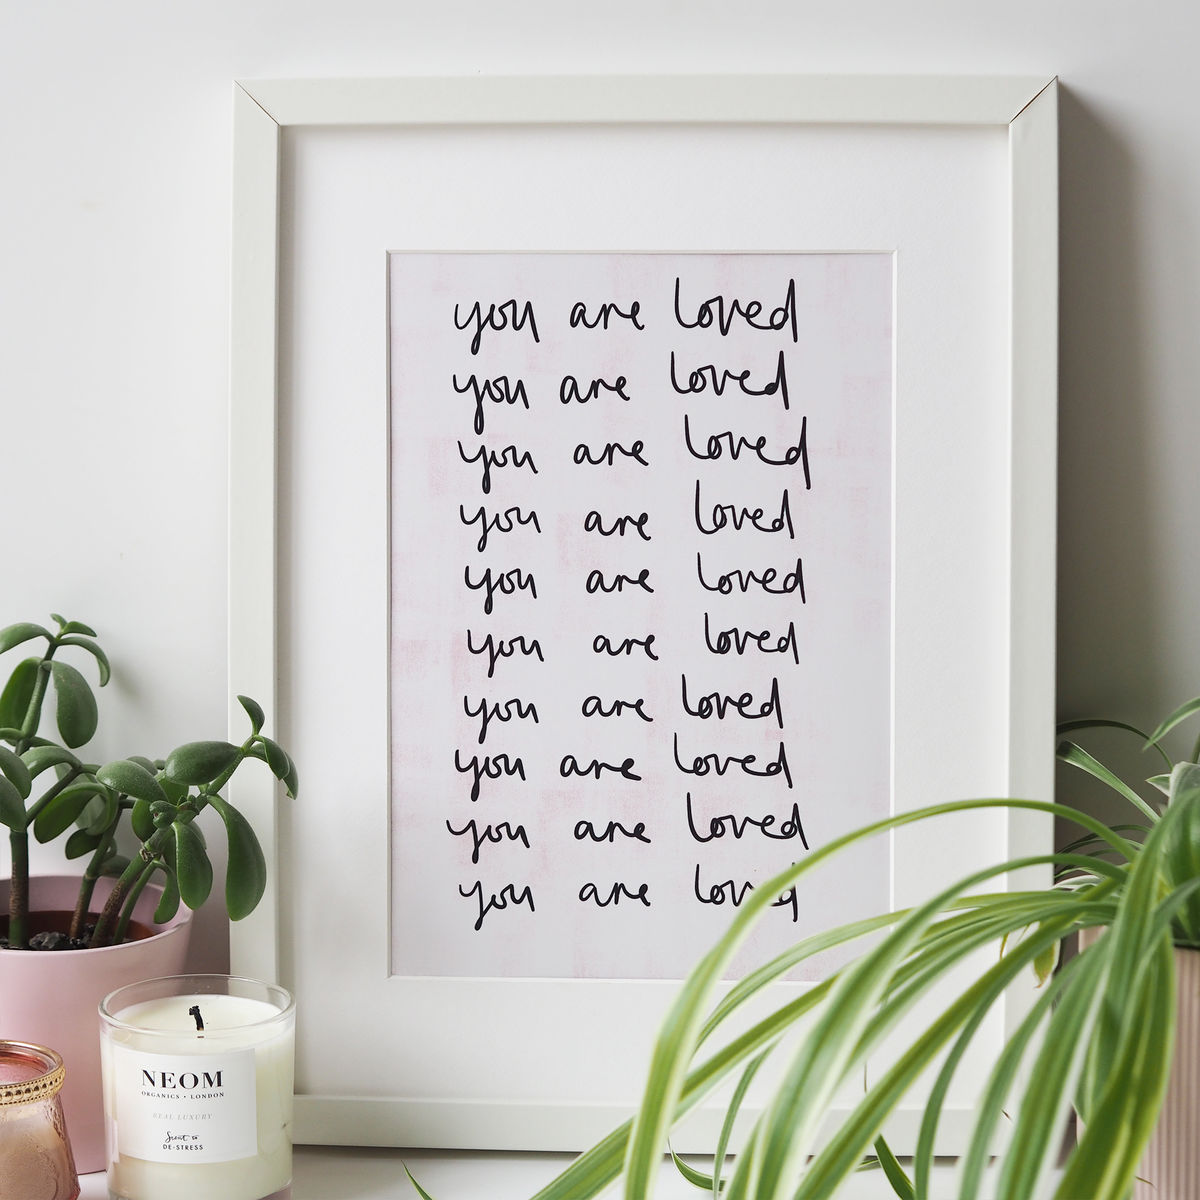 you are loved
you are loved
you are loved
you are loved
you are loved
you are loved
you are loved
you are loved
you are loved
you are loved
NEOM
ORGANICS • LONDON
REAL LUXURY
Scent to
DE-STRESS